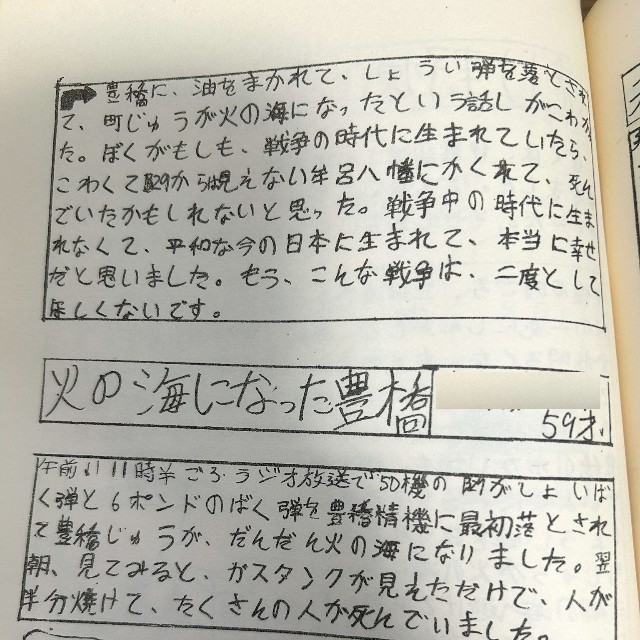 豊橋に、油をまかれて、しょうい弾を落とされ
て、町じゅうが火の海になったという話しがこわかっ
た。ぼくがもしも、戦争の時代に生まれていたら、
こわくてB29からは見えない牟呂八幡にかくれて、死ん
でいたかもしれないと思った。戦争中の時代に生ま
れなくて、平和な今の日本に生まれて、本当に幸せ
だと思いました。もう、こんな戦争は、二度として
ほしくないです。
火の海になった豊橋
59才
午前い11時半ごろラジオ放送で50機のB29がしょいば
く弾と6ポンドのばく弾を豊橋精機に最初落とされ
て豊橋じゅうが、だんだん火の海になりました。翌
朝、見てみると、ガスタンクが見えただけで、人が
半分焼けて、たくさんの人が死んでいました